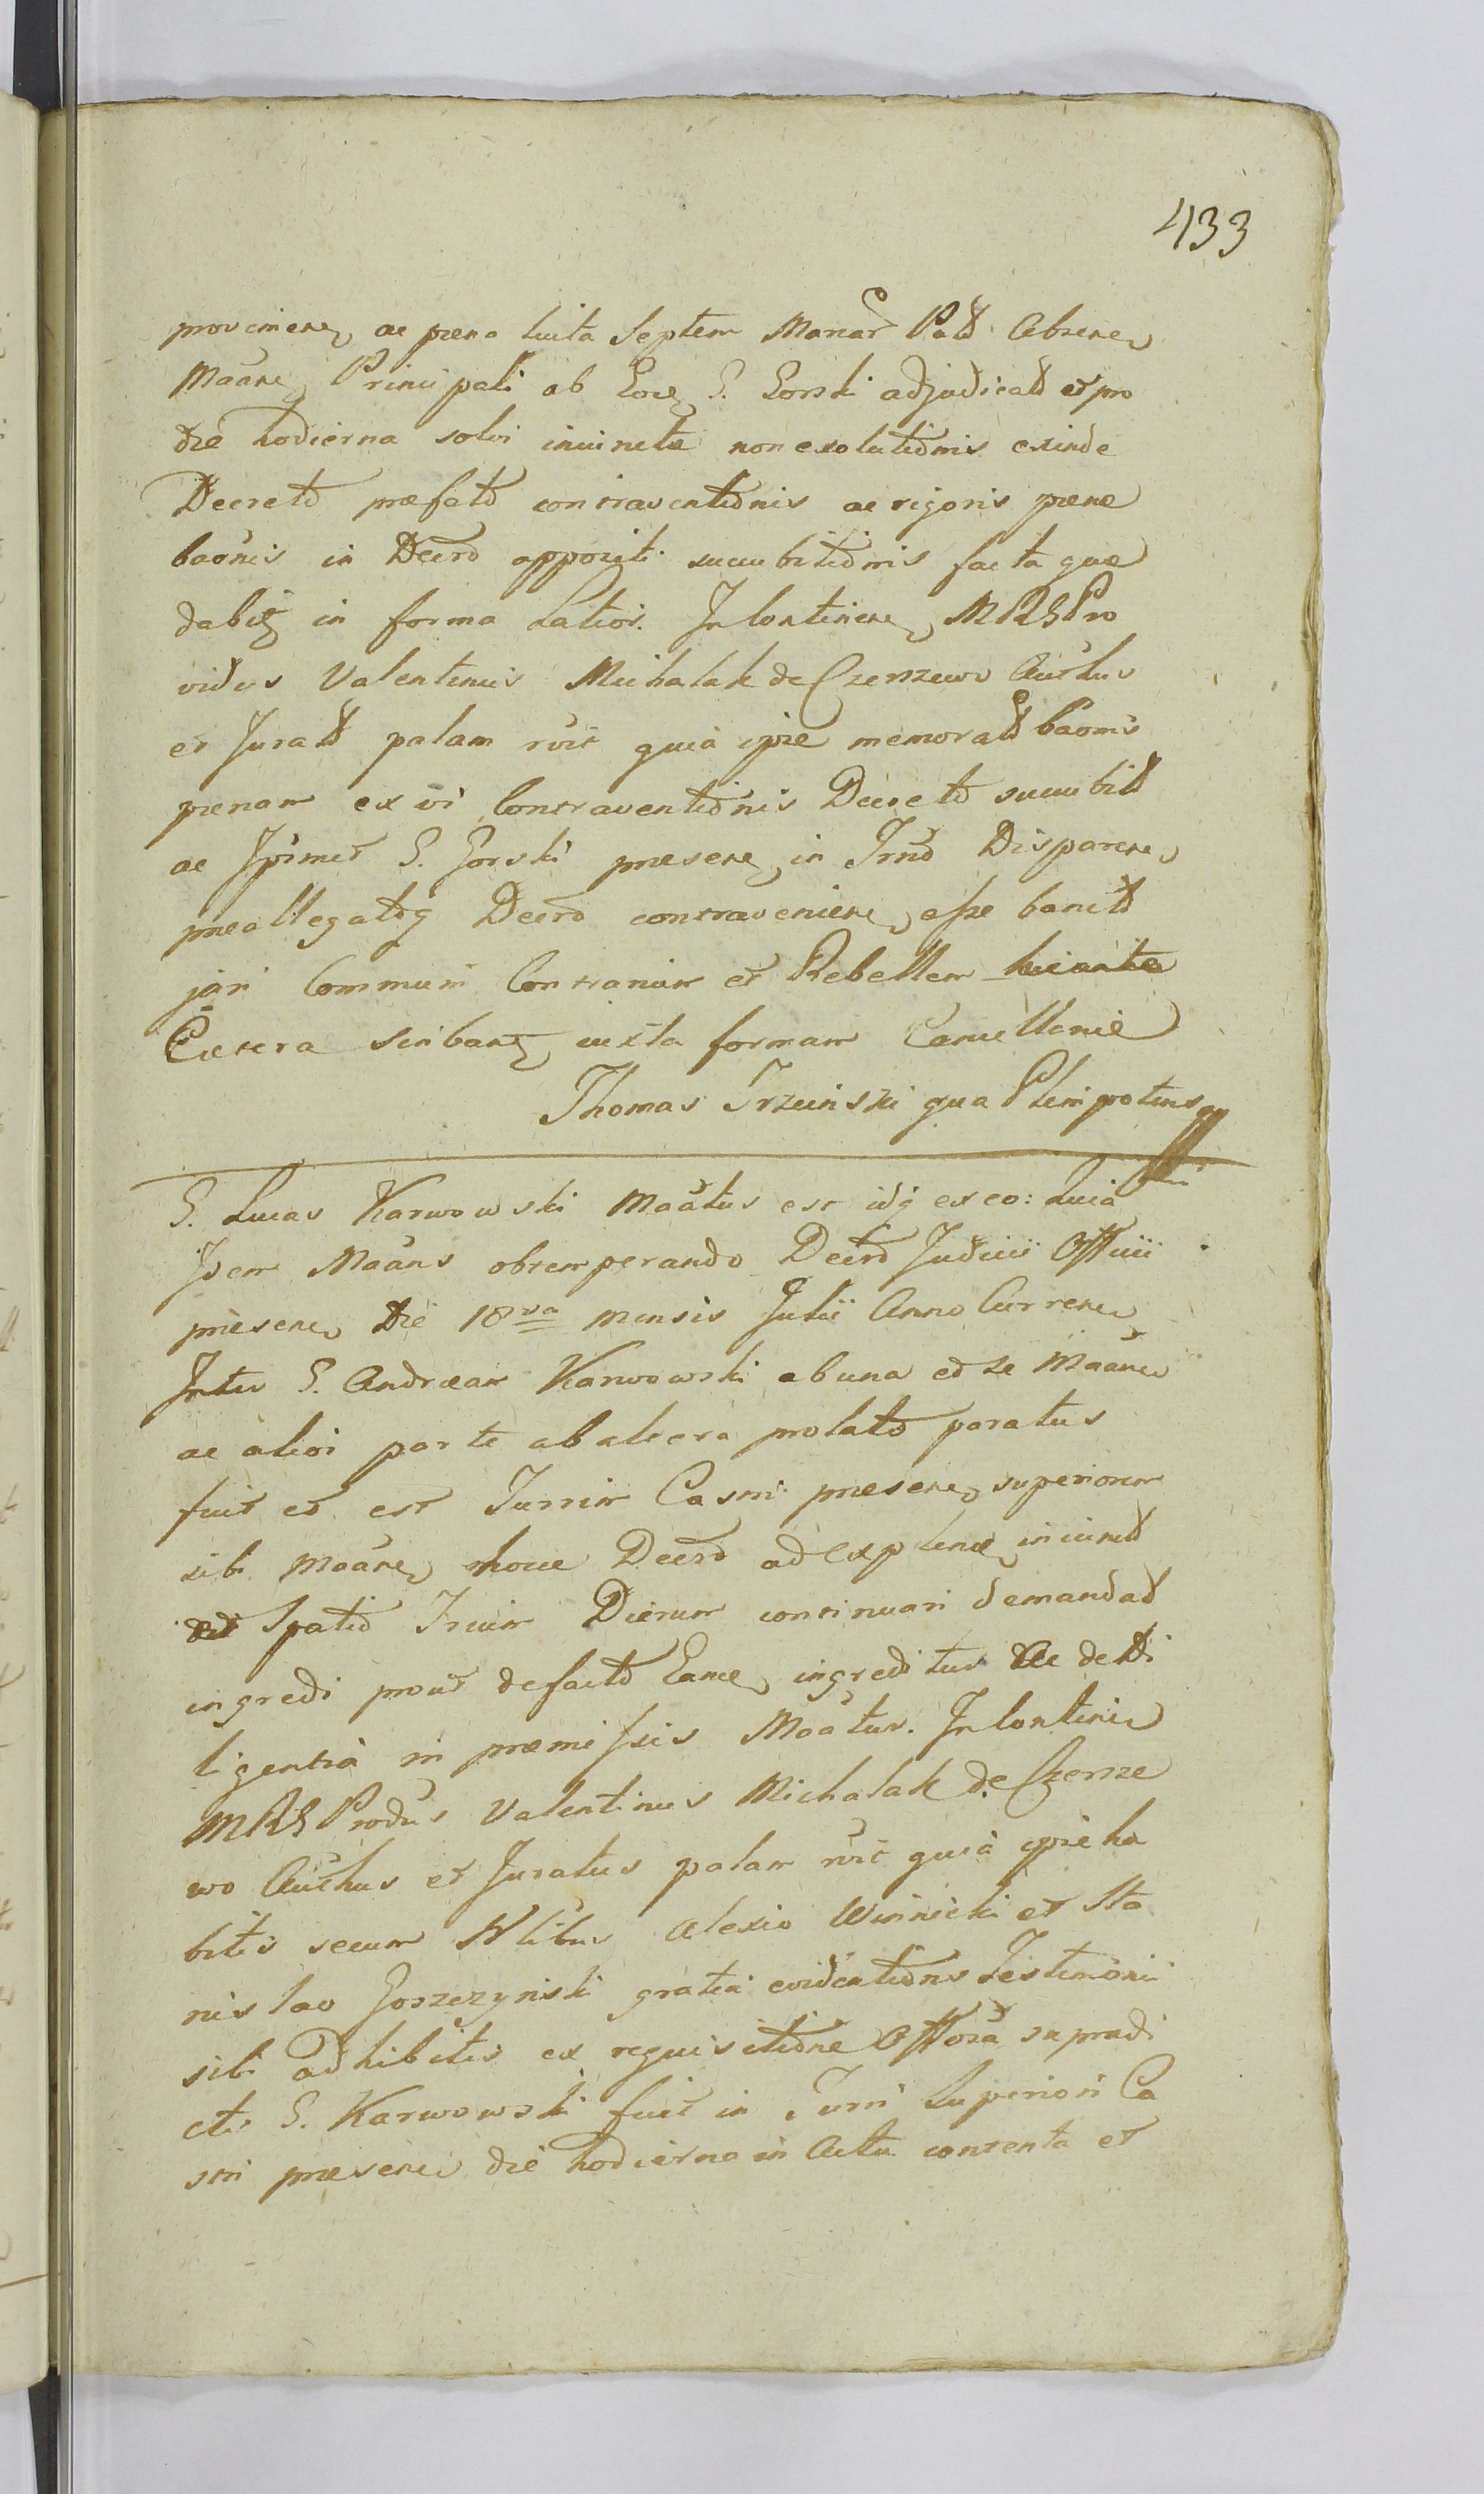 433
provenien ac pæna luita Septem Marcar Pold Absen
Maane Principali ab Eoe G. Gorski adjudicatd et pro
die hodierna solvi iniunctæ non exolutionis exinde
Decreto præfato contraventionis ac rigoris pænæ
baonis in Decro appositi sucubitionis facta quæ
dabit in forma Latior. In Continen MRG Pro
vidus Valentinus Michalak de Czerszewo Authus
et Juratd palam rvit quia ipse memoratd baonis
pænam ex vi Contraventionis Decreto sucubitd
ac G. Gorski præsen in Trmo Disparen
præallegatoq Decro contravenien esse banitd
juri Communi Contrarium et Rebellem
Cætera scribant iuxta formam Cancellariæ
Thomas Trzcinski qua Plenipotens
G. Lucas Karwowski Maatus est idq ex eo: Quia
Idem Maans obtemperando Decro Judicii Officii
præsen Die 18va mensis Julii Anno Curren
Inter G. Andream Karwowski ab una et se Maane
ac alioi parte ab altera prolato paratus
fuit et est Turrim Castri præsen superiorem
sibi Maane hocce Decro ad explen iniunctd
Spatio Trium Dierum continuari demandatd
ingredi prout de facto Eance ingreditur Ac de Di
ligentia in præmissis Maatur. In Contine
MRG Produs Valentinus Michalak de Czersze
wo Authus et Juratus palam rvit quia ipse ha
bitis secum Nlibus Alexio Winnicki et Sta
nislao Goszczynski gratia evidentionis Testimonii
sibi adhibitis ex requisitione Offosa supradi
cti G. Karwowski fuit in Turri Superiori Ca
stri præsen die hodierna in Actu contenta et